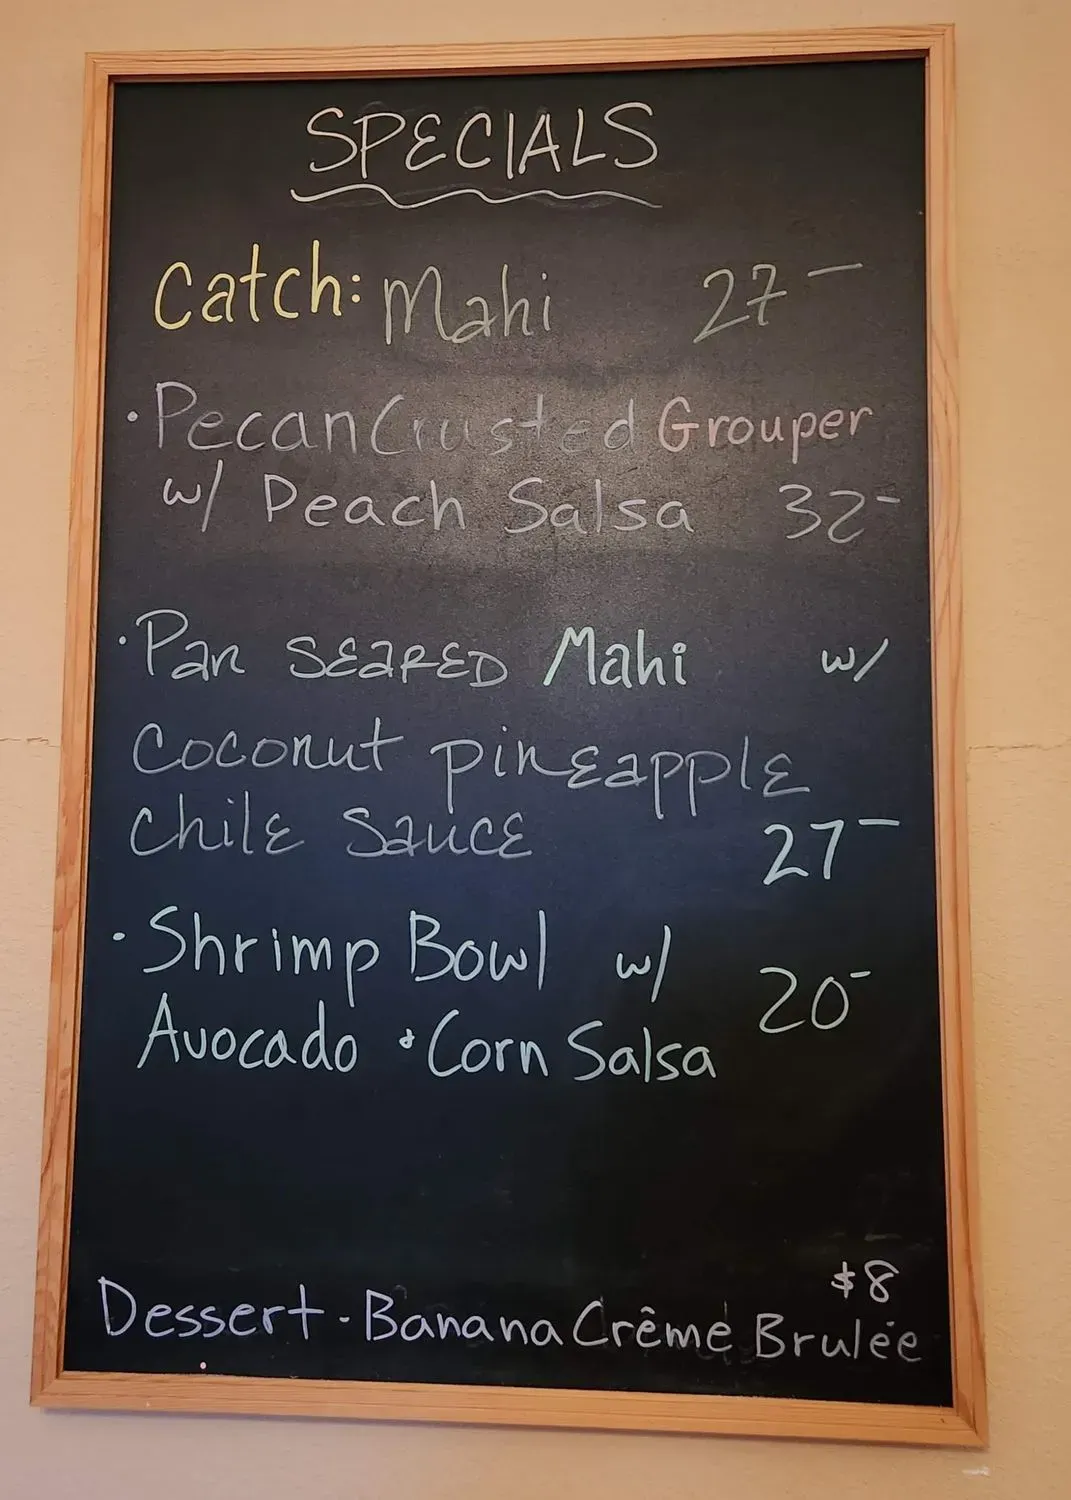 SPECIALS
Catch: Mahi 27-
• Pecan Crusted Grouper
w/ Peach Salsa 32-
• Pan SEARED Mahi w/
Coconut pineapple
Chile Sauce 27-
• Shrimp Bowl w/ 20-
Avocado & Corn Salsa
$8
Dessert - Banana Crême Brulée